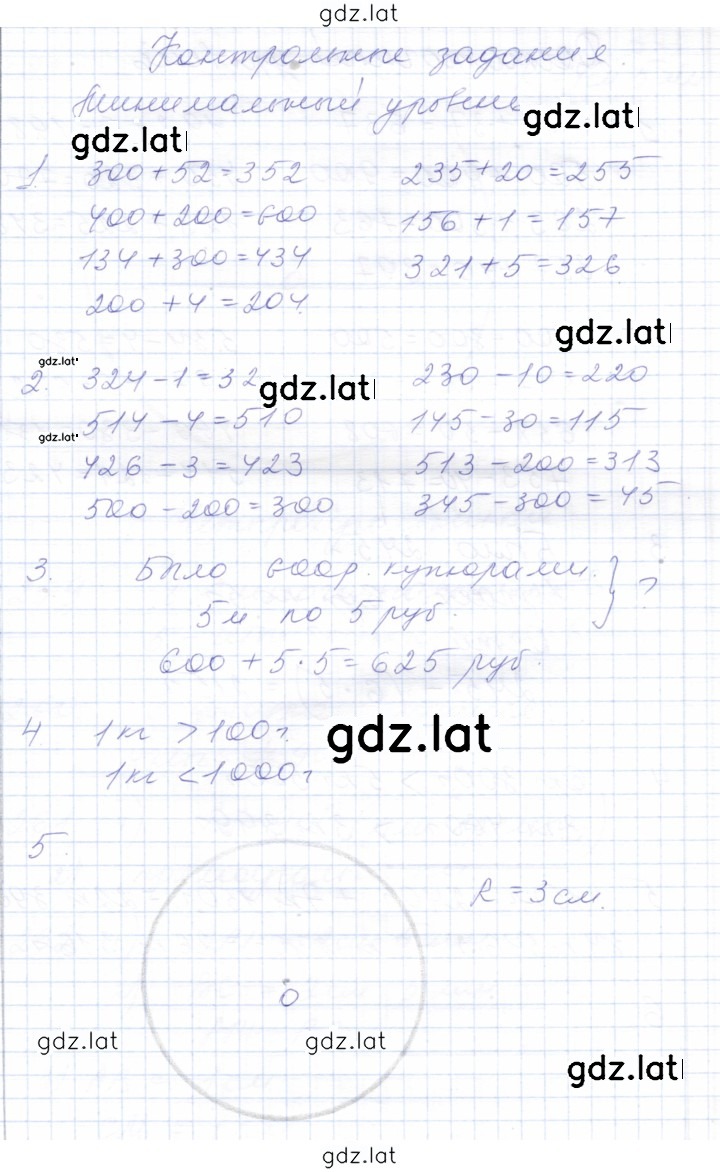 gdz.lat
Контрольные задания.
Минимальный уровень
gdz.lat gdz.lat
1. 300 + 52 = 352 235 + 20 = 255
400 + 200 = 600 156 + 1 = 157
134 + 300 = 434 321 + 5 = 326
200 + 4 = 204
gdz.lat
gdz.lat
2. 324 - 1 = 32 gdz.lat 230 - 10 = 220
514 - 4 = 510 145 - 30 = 115
gdz.lat
426 - 3 = 423 513 - 200 = 313
500 - 200 = 300 345 - 300 = 45
3. Было 600 р. купюрами. } ?
5 м по 5 руб.
600 + 5 · 5 = 625 руб.
4 1 кг > 100 г
gdz.lat
1 кг < 1000 г
5.
R = 3 см.
O
gdz.lat gdz.lat
gdz.lat
gdz.lat